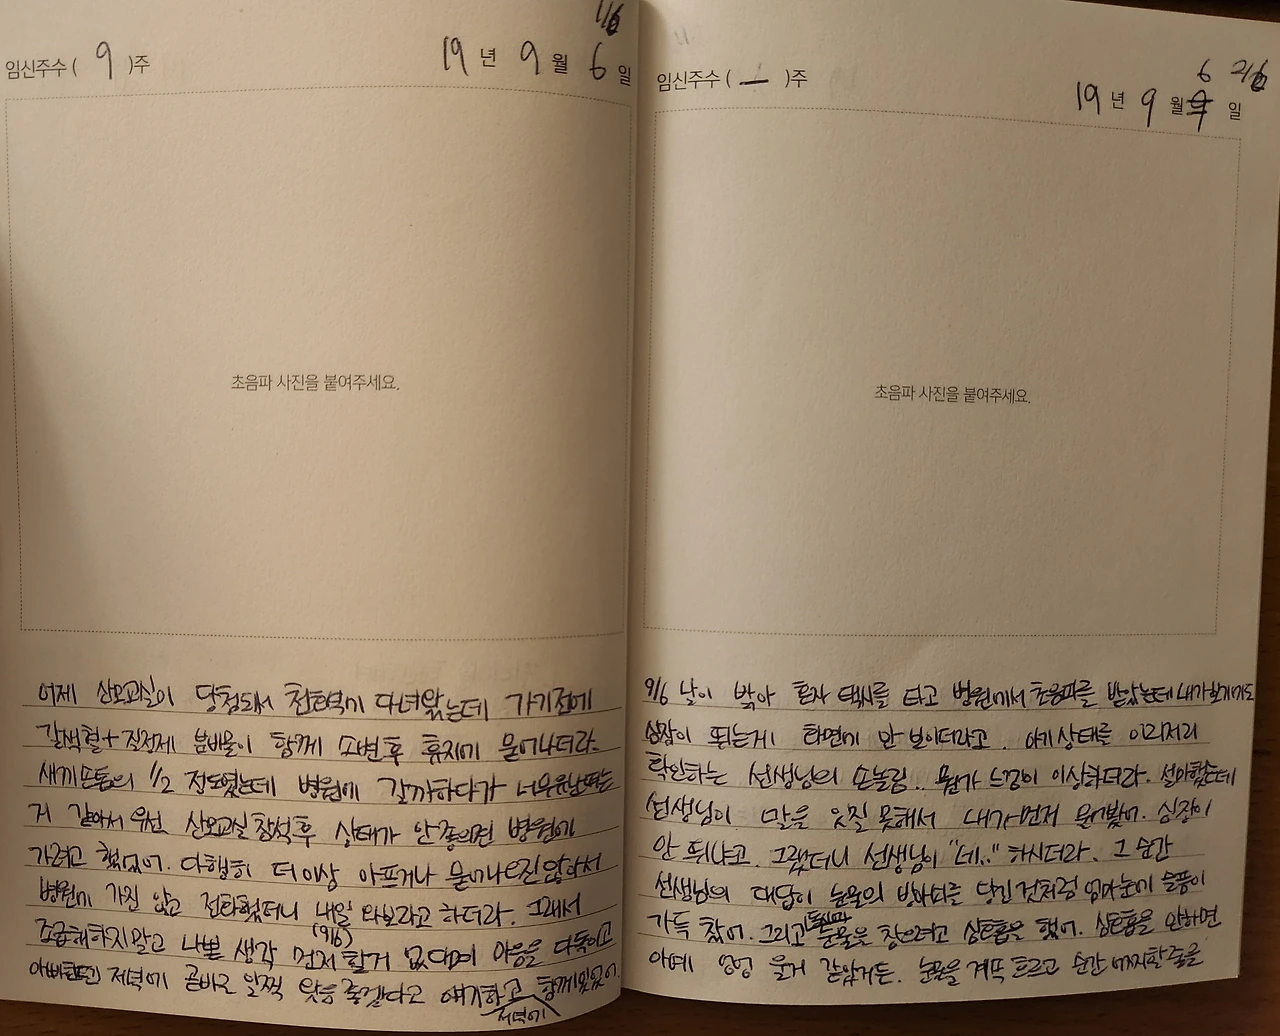 1/6
임신주수 ( 9 )주 19 년 9 월 6 일
초음파 사진을 붙여주세요.
어제 산모교실이 당첨돼서 천호역에 다녀왔는데 가기전에
갈색혈+질정제 분비물이 함께 소변후 휴지에 묻어나더라.
새끼손톱의 1/2 정도였는데 병원에 갈까하다가 너무
거 같아서 우선 산모교실 참석후 상태가 안좋으면 병원에
가려고 했었어. 다행히 더이상 아프거나 묻어나오진 않아서
병원에 가진 않고 전화했더니 내일 와보라고 하더라. 그래서
(9/6)
조급해하지말고 나쁜 생각 먼저 할거 없다며 마음을 다독이고
아빠한텐 저녁에 곧바로 일찍 왔음 좋겠다고 얘기하고 함께있었어.
저녁에
2/6
임신주수 ( — )주 19 년 9 월 6 일
초음파 사진을 붙여주세요.
9/6 날이 밝아 혼자 택시를 타고 병원에서 초음파를 받았는데 내가 보기에도
심장이 뛰는게 화면에 안 보이더라고. 아기 상태를 이리저리
확인하는 선생님의 손놀림.. 뭔가 느낌이 이상하더라. 설마했는데
선생님이 말을 잇질 못해서 내가 먼저 물어봤어. 심장이
안 뛰냐고. 그랬더니 선생님이 "네.." 하시더라. 그 순간
선생님의 대답이 눈물의 방아쇠를 당긴 것처럼 엄마눈에 슬픔이
가득 찼어. 그리고 눈물을 참으려고 심호흡을 했어. 심호흡을 안하면
아예 엉엉 울거 같았거든. 눈물을 계속 흐르고 순간 어찌할 줄을